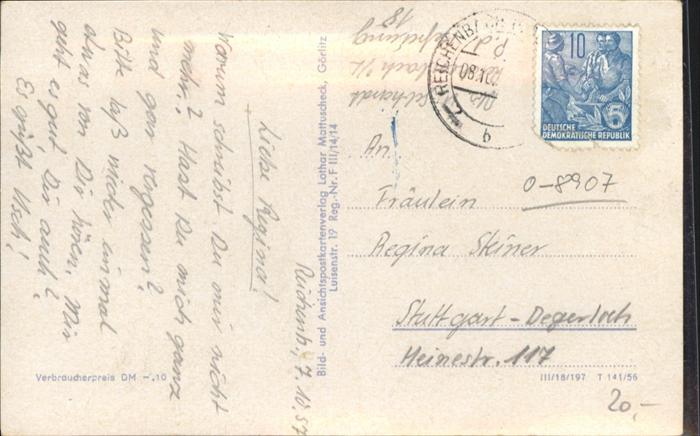 Reichenb., 7.10.57
Liebe Regina!
Warum schreibst Du mir nicht
mehr? Hast Du mich ganz
und gar vergessen?
Bitte laß wieder einmal
etwas von Dir hören. Mir
geht es gut, Dir auch?
Es grüßt Usch!
Verbraucherpreis DM -.10
Bild- und Ansichtspostkartenverlag Lothar Mattuscheck, Görlitz
Luisenstr. 19 Reg.-Nr. F III/14/14
REICHENBACH
08.10.
b
10
DEUTSCHE
DEMOKRATISCHE REPUBLIK
An
Fräulein
0-8907
Regina Steiner
Stuttgart-Degerloch
Heinestr. 117
III/18/197 T 141/56
20,-